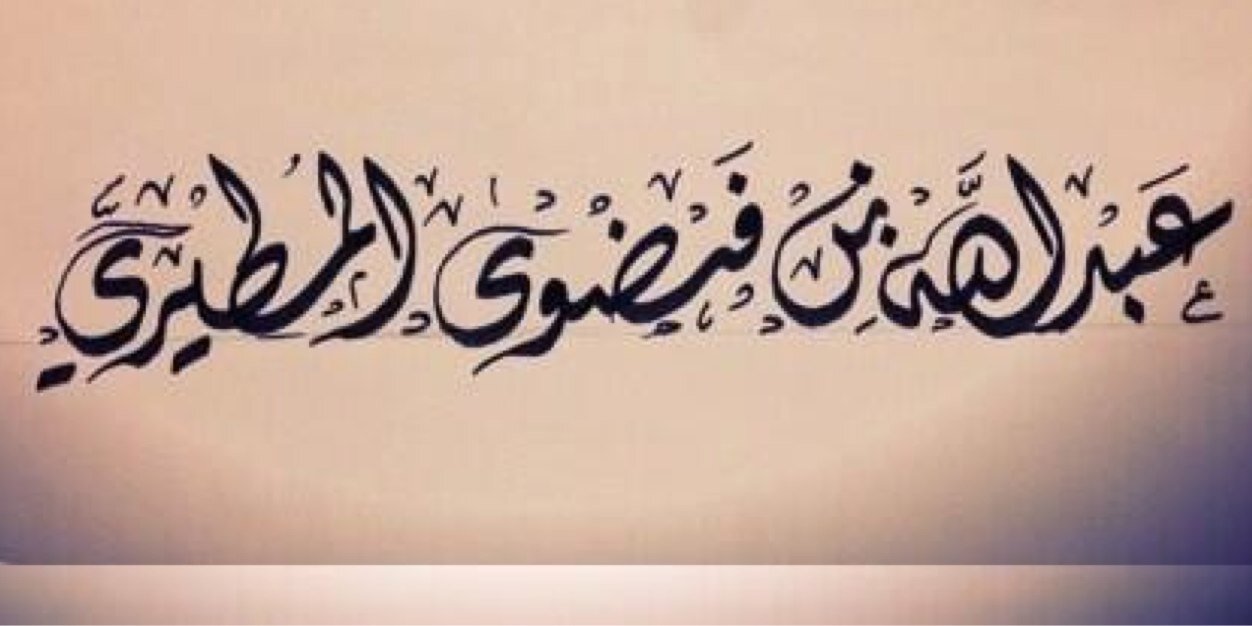 عبدالله بن فيضوي المطيري